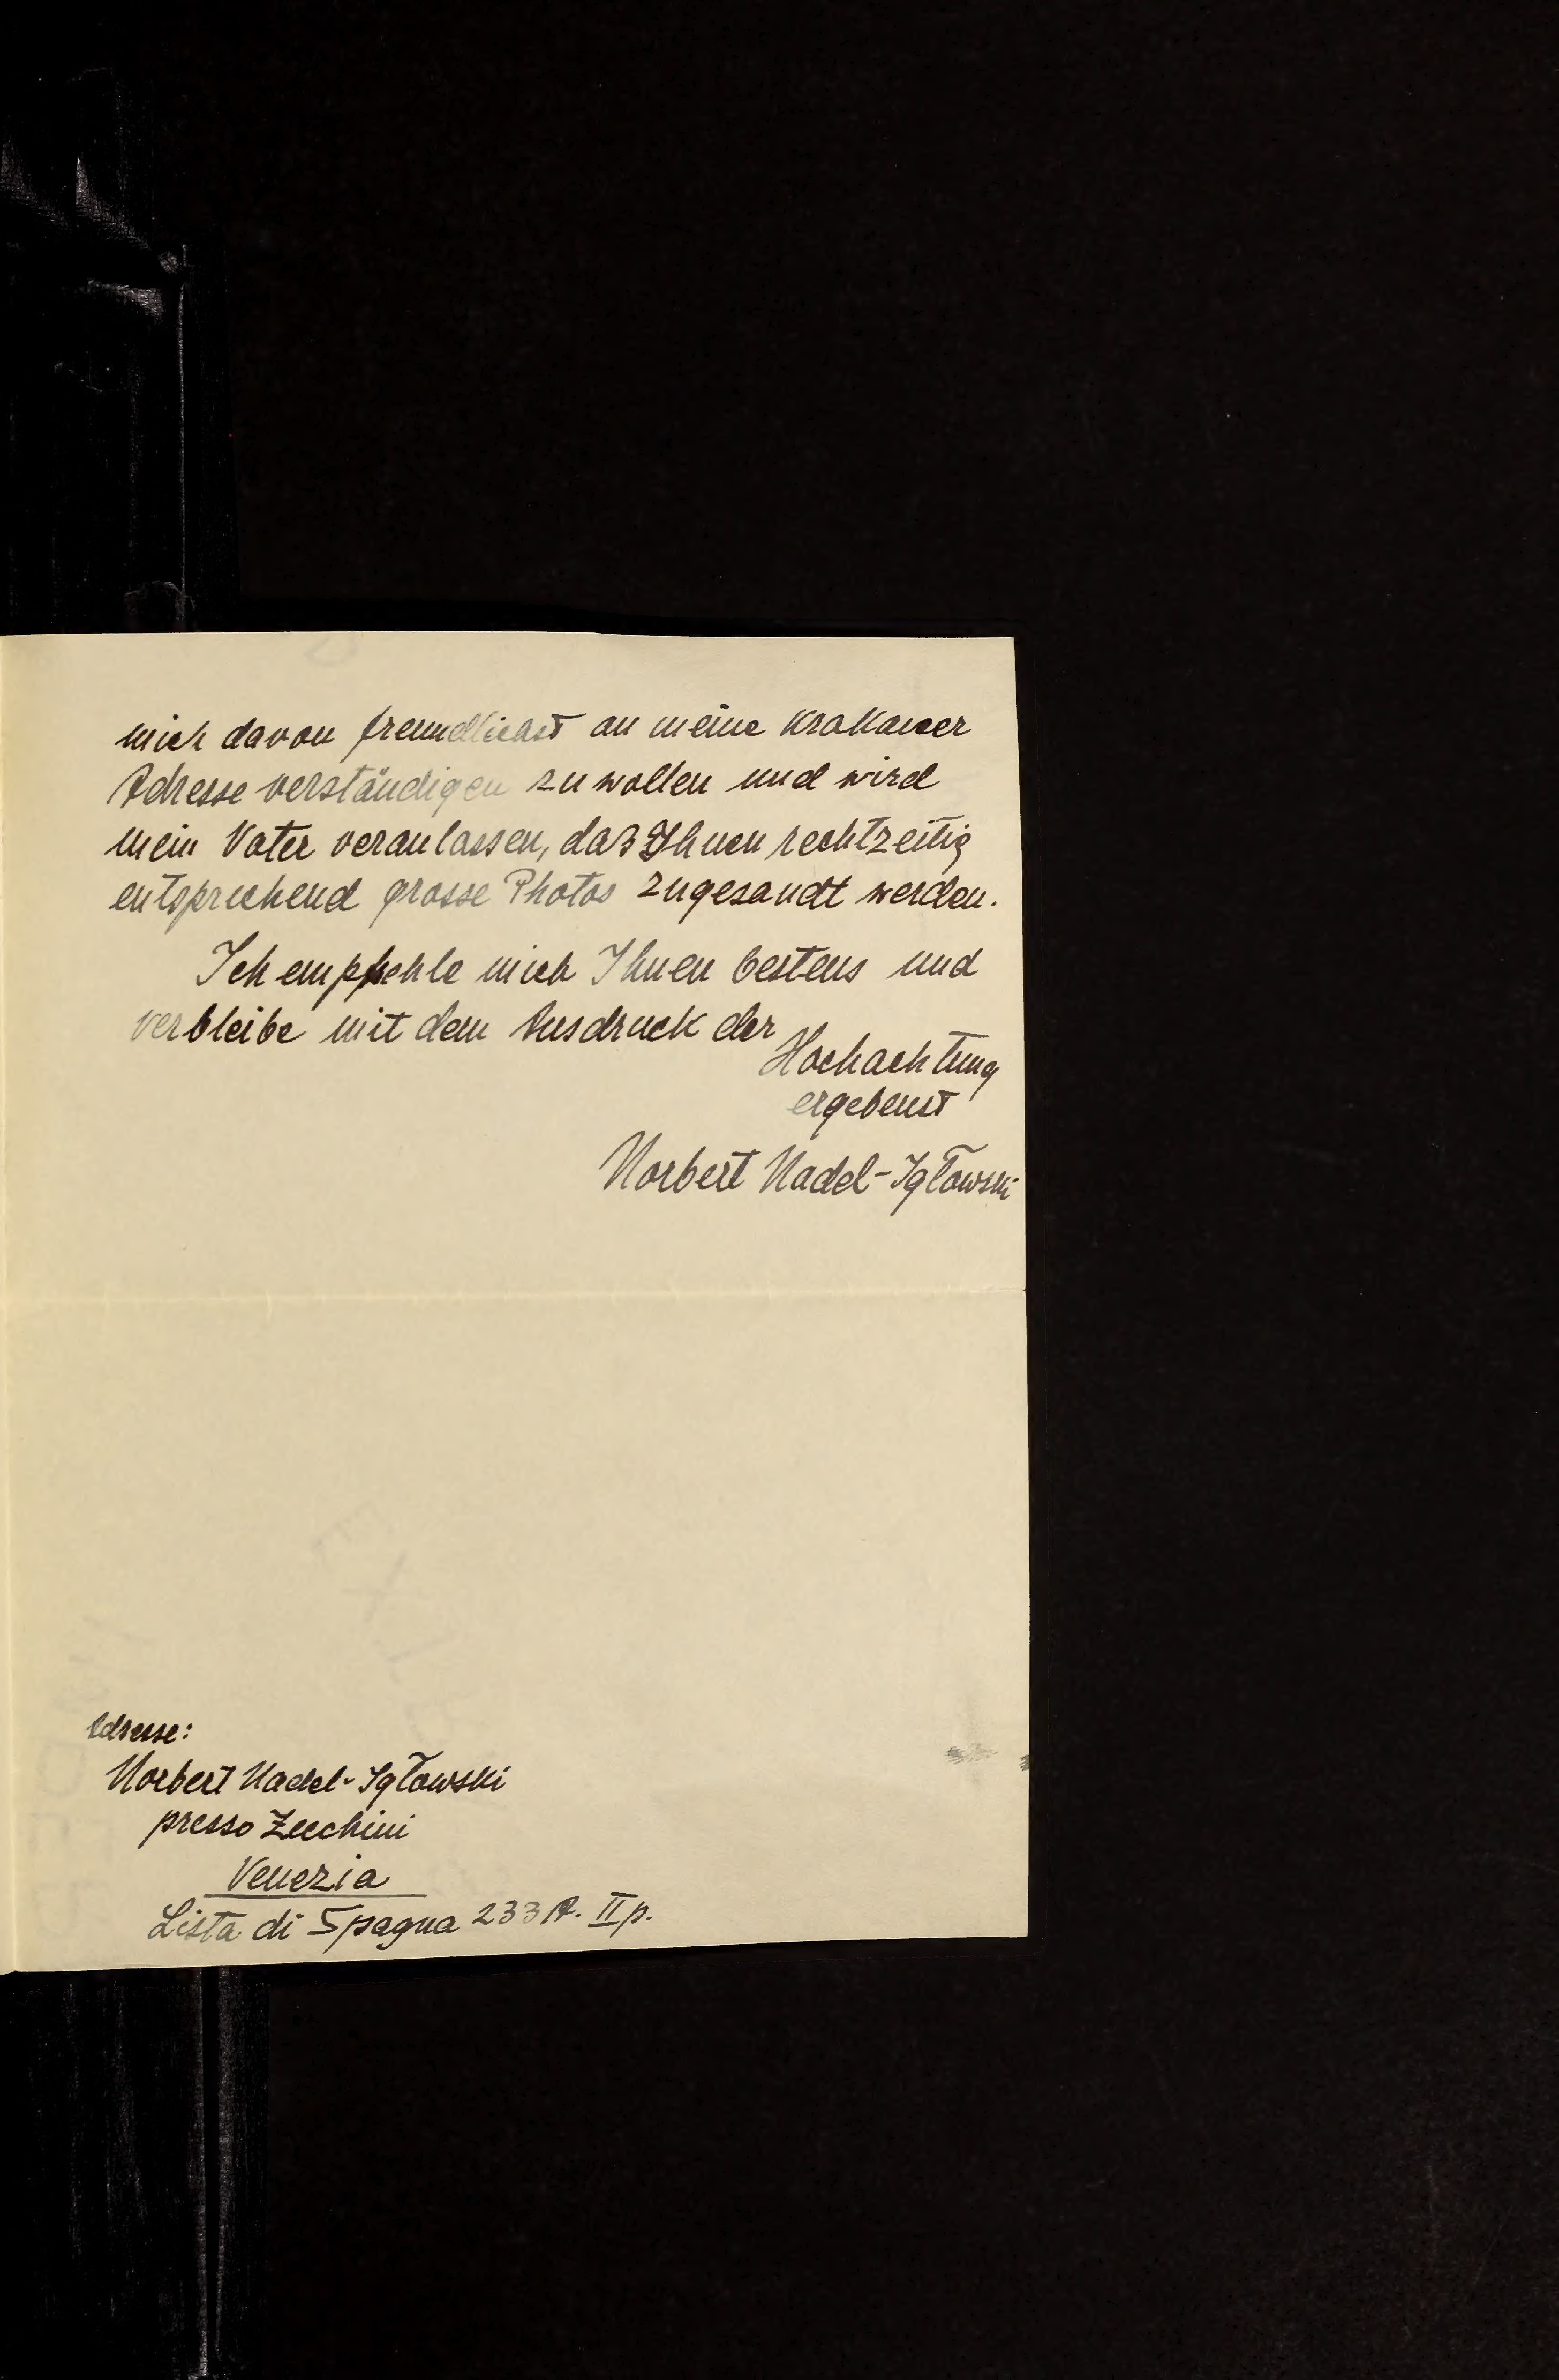 mich davon freundlichst an meine Krakauer
Adresse verständigen zu wollen und wird
mein Vater veranlassen, daß Ihnen rechtzeitig
entsprechend grosse Photos zugesandt werden.
Ich empfehle mich Ihnen bestens und
verbleibe mit dem Ausdruck der
Hochachtung
ergebenst
Norbert Nadel-Igłowski
Adresse:
Norbert Nadel-Igłowski
presso Zecchini
Venezia
Lista di Spagna 233 A. II p.